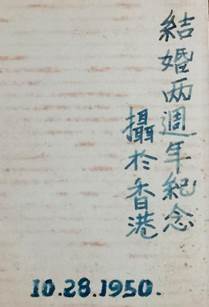 結婚两週年紀念
攝於香港
10.28.1950.